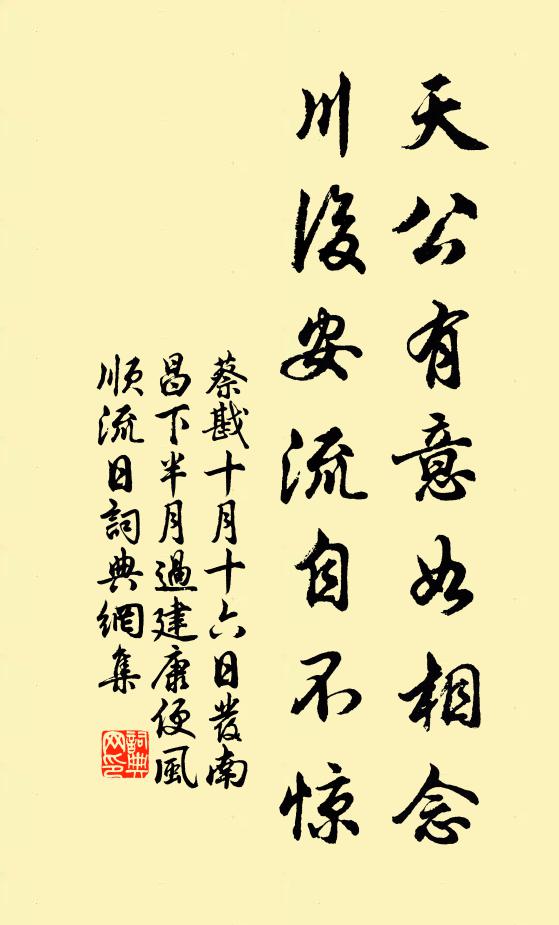 天公有意如相念
川後安流自不惊
蔡戡十月十六日發南
昌下半月過建康便風
順流日詞典網集
詞典
网印